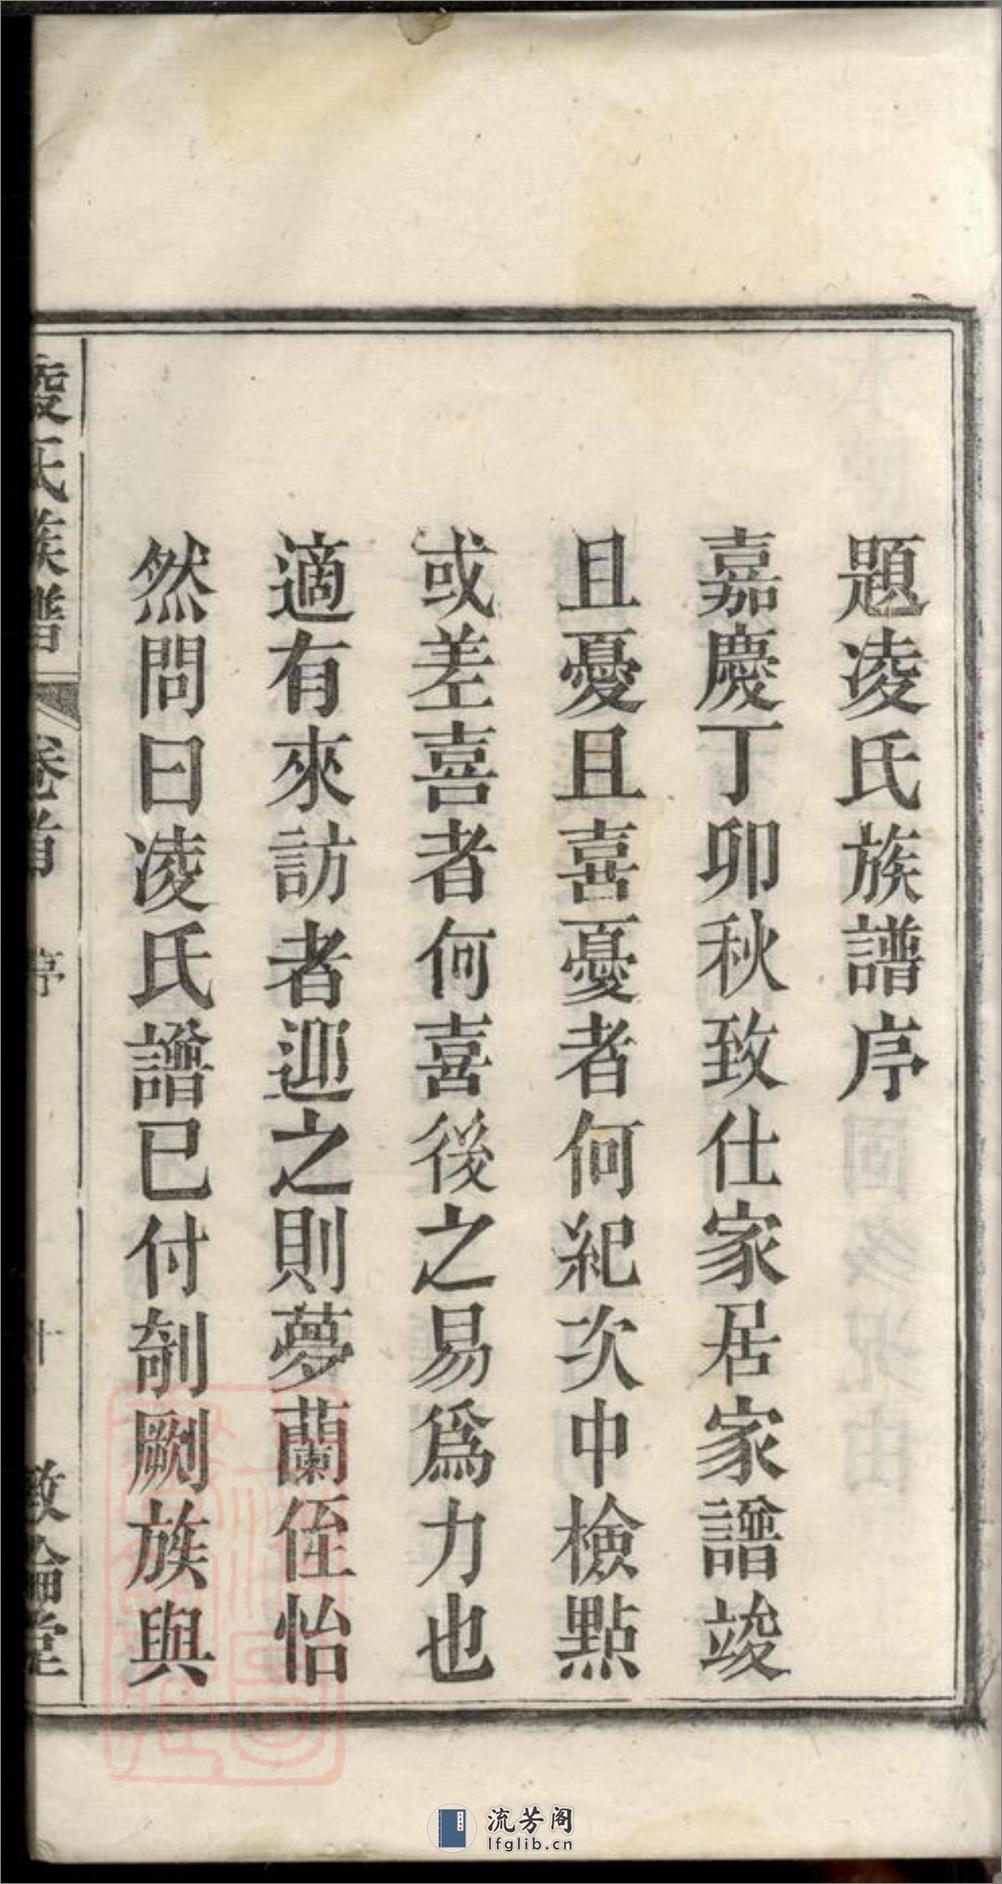 題凌氏族譜序
嘉慶丁卯秋致仕家居家譜竣
且憂且喜憂者何紀次中檢點
或差喜者何喜後之易爲力也
適有來訪者迎之則夢蘭侄怡
然問曰凌氏譜已付剞劂族與
凌氏族譜
卷首
序
十
敦倫堂
流芳阁
lfglib.cn